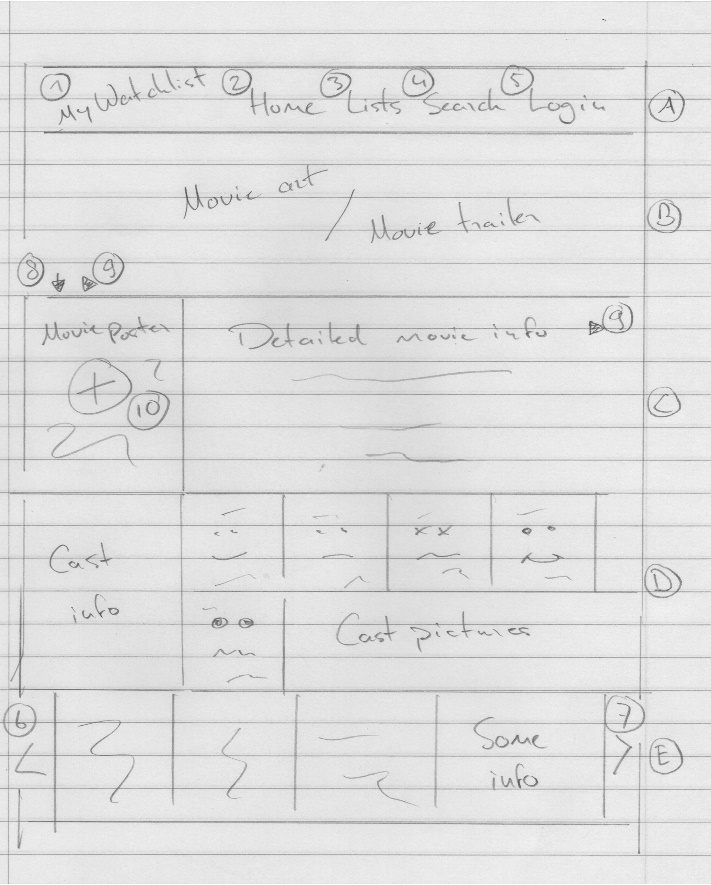 1 2 3 4 5
My Watchlist Home Lists Search Login A
Movie art / Movie trailer B
8 9
Movie poster Detailed movie info 9
+ 10 C
Cast info D
Cast pictures
6 7
< Some info > E